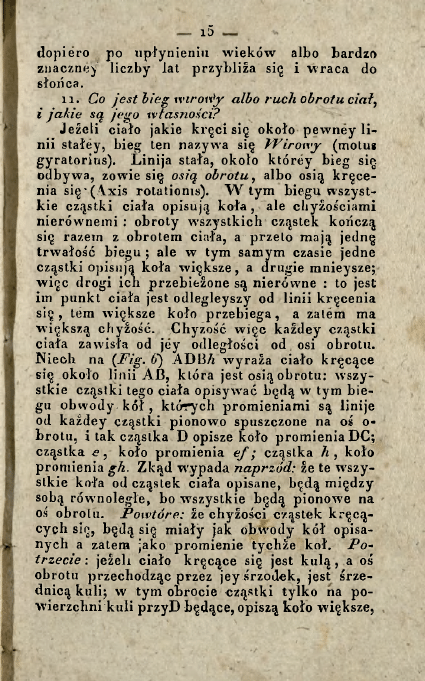 — 15 —
dopiéro po upłynieniu wieków albo bardzo
znacznéy liczby lat przybliża się i wraca do
słońca.
11. Co jest bieg wirowy albo ruch obrotu ciał,
i jakie są jego własności?
Jeżeli ciało jakie kręci się około pewnéy li-
nii stałéy, bieg ten nazywa się Wirowy (motus
gyratorius). Linija stała, około któréy bieg się
odbywa, zowie się osią obrotu, albo osią kręce-
nia się (Axis rotationis). W tym biegu wszyst-
kie cząstki ciała opisują koła, ale chyżościami
nierównemi: obroty wszystkich cząstek kończą
się razem z obrotem ciała, a przeto mają jednę
trwałość biegu; ale w tym samym czasie jedne
cząstki opisują koła większe, a drugie mnieysze;
więc drogi ich przebieżone są nierówne: to jest
im punkt ciała jest odlegleyszy od linii kręcenia
się, tem większe koło przebiega, a zatém ma
większą chyżość. Chyżość więc każdey cząstki
ciała zawisła od jéy odległości od osi obrotu.
Niech na (Fig. 6) ADBh wyraża ciało kręcące
się około linii AB, która jest osią obrotu: wszy-
stkie cząstki tego ciała opisywać będą w tym bie-
gu obwody kół, których promieniami są linije
od każdey cząstki pionowo spuszczone na oś o-
brotu, i tak cząstka D opisze koło promienia DC;
cząstka e, koło promienia ef; cząstka h, koło
promienia gh. Zkąd wypada naprzód: że te wszy-
stkie koła od cząstek ciała opisane, będą między
sobą równoległe, bo wszystkie będą pionowe na
oś obrotu. Powtóre: że chyżości cząstek kręcą-
cych się, będą się miały jak obwody kół opisa-
nych a zatem jako promienie tychże kół. Po-
trzecie: jeżeli ciało kręcące się jest kulą, a oś
obrotu przechodząc przez jey śrzodek, jest śrze-
dnicą kuli; w tym obrocie cząstki tylko na po-
wierzchni kuli przy D będące, opiszą koło większe,